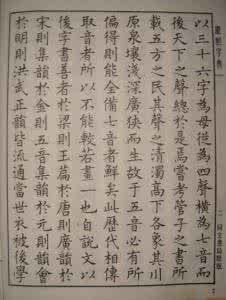 康熙字典
二 同文書局原版
以三十六字為母從為四聲橫為七音而
後天下之聲總於是焉嘗考管子之書所
載五方之民其聲之清濁高下各象其川
原泉壤淺深廣狹而生故於五音必有所
偏得則能全備七音者鮮矣此歷代相傳
取音者所以不能較若畫一也自說文以
後字書善者於梁則玉篇於唐則廣韻於
宋則集韻於金則五音集韻於元則韻會
於明則洪武正韻皆流通當世衣被後學